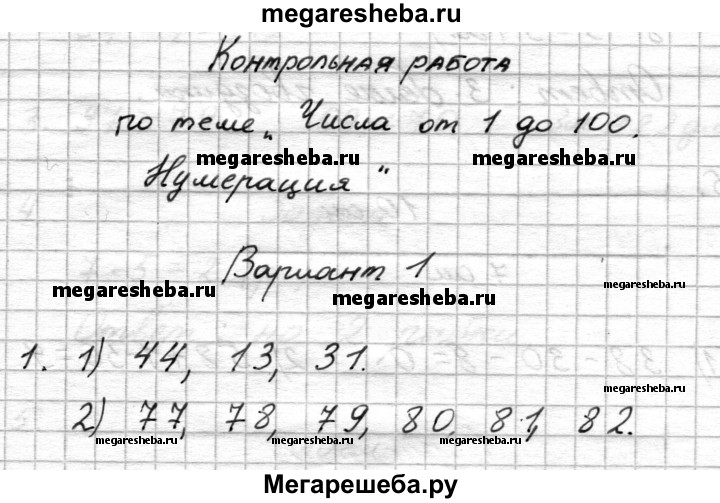 megaresheba.ru
Контрольная работа
по теме „Числа от 1 до 100.
megaresheba.ru megaresheba.ru
Нумерация“
Вариант 1
megaresheba.ru megaresheba.ru megaresheba.ru
1. 1) 44, 13, 31.
megaresheba.ru
2) 77, 78, 79, 80, 81, 82.
megaresheba.ru megaresheba.ru
Мегарешеба.ру